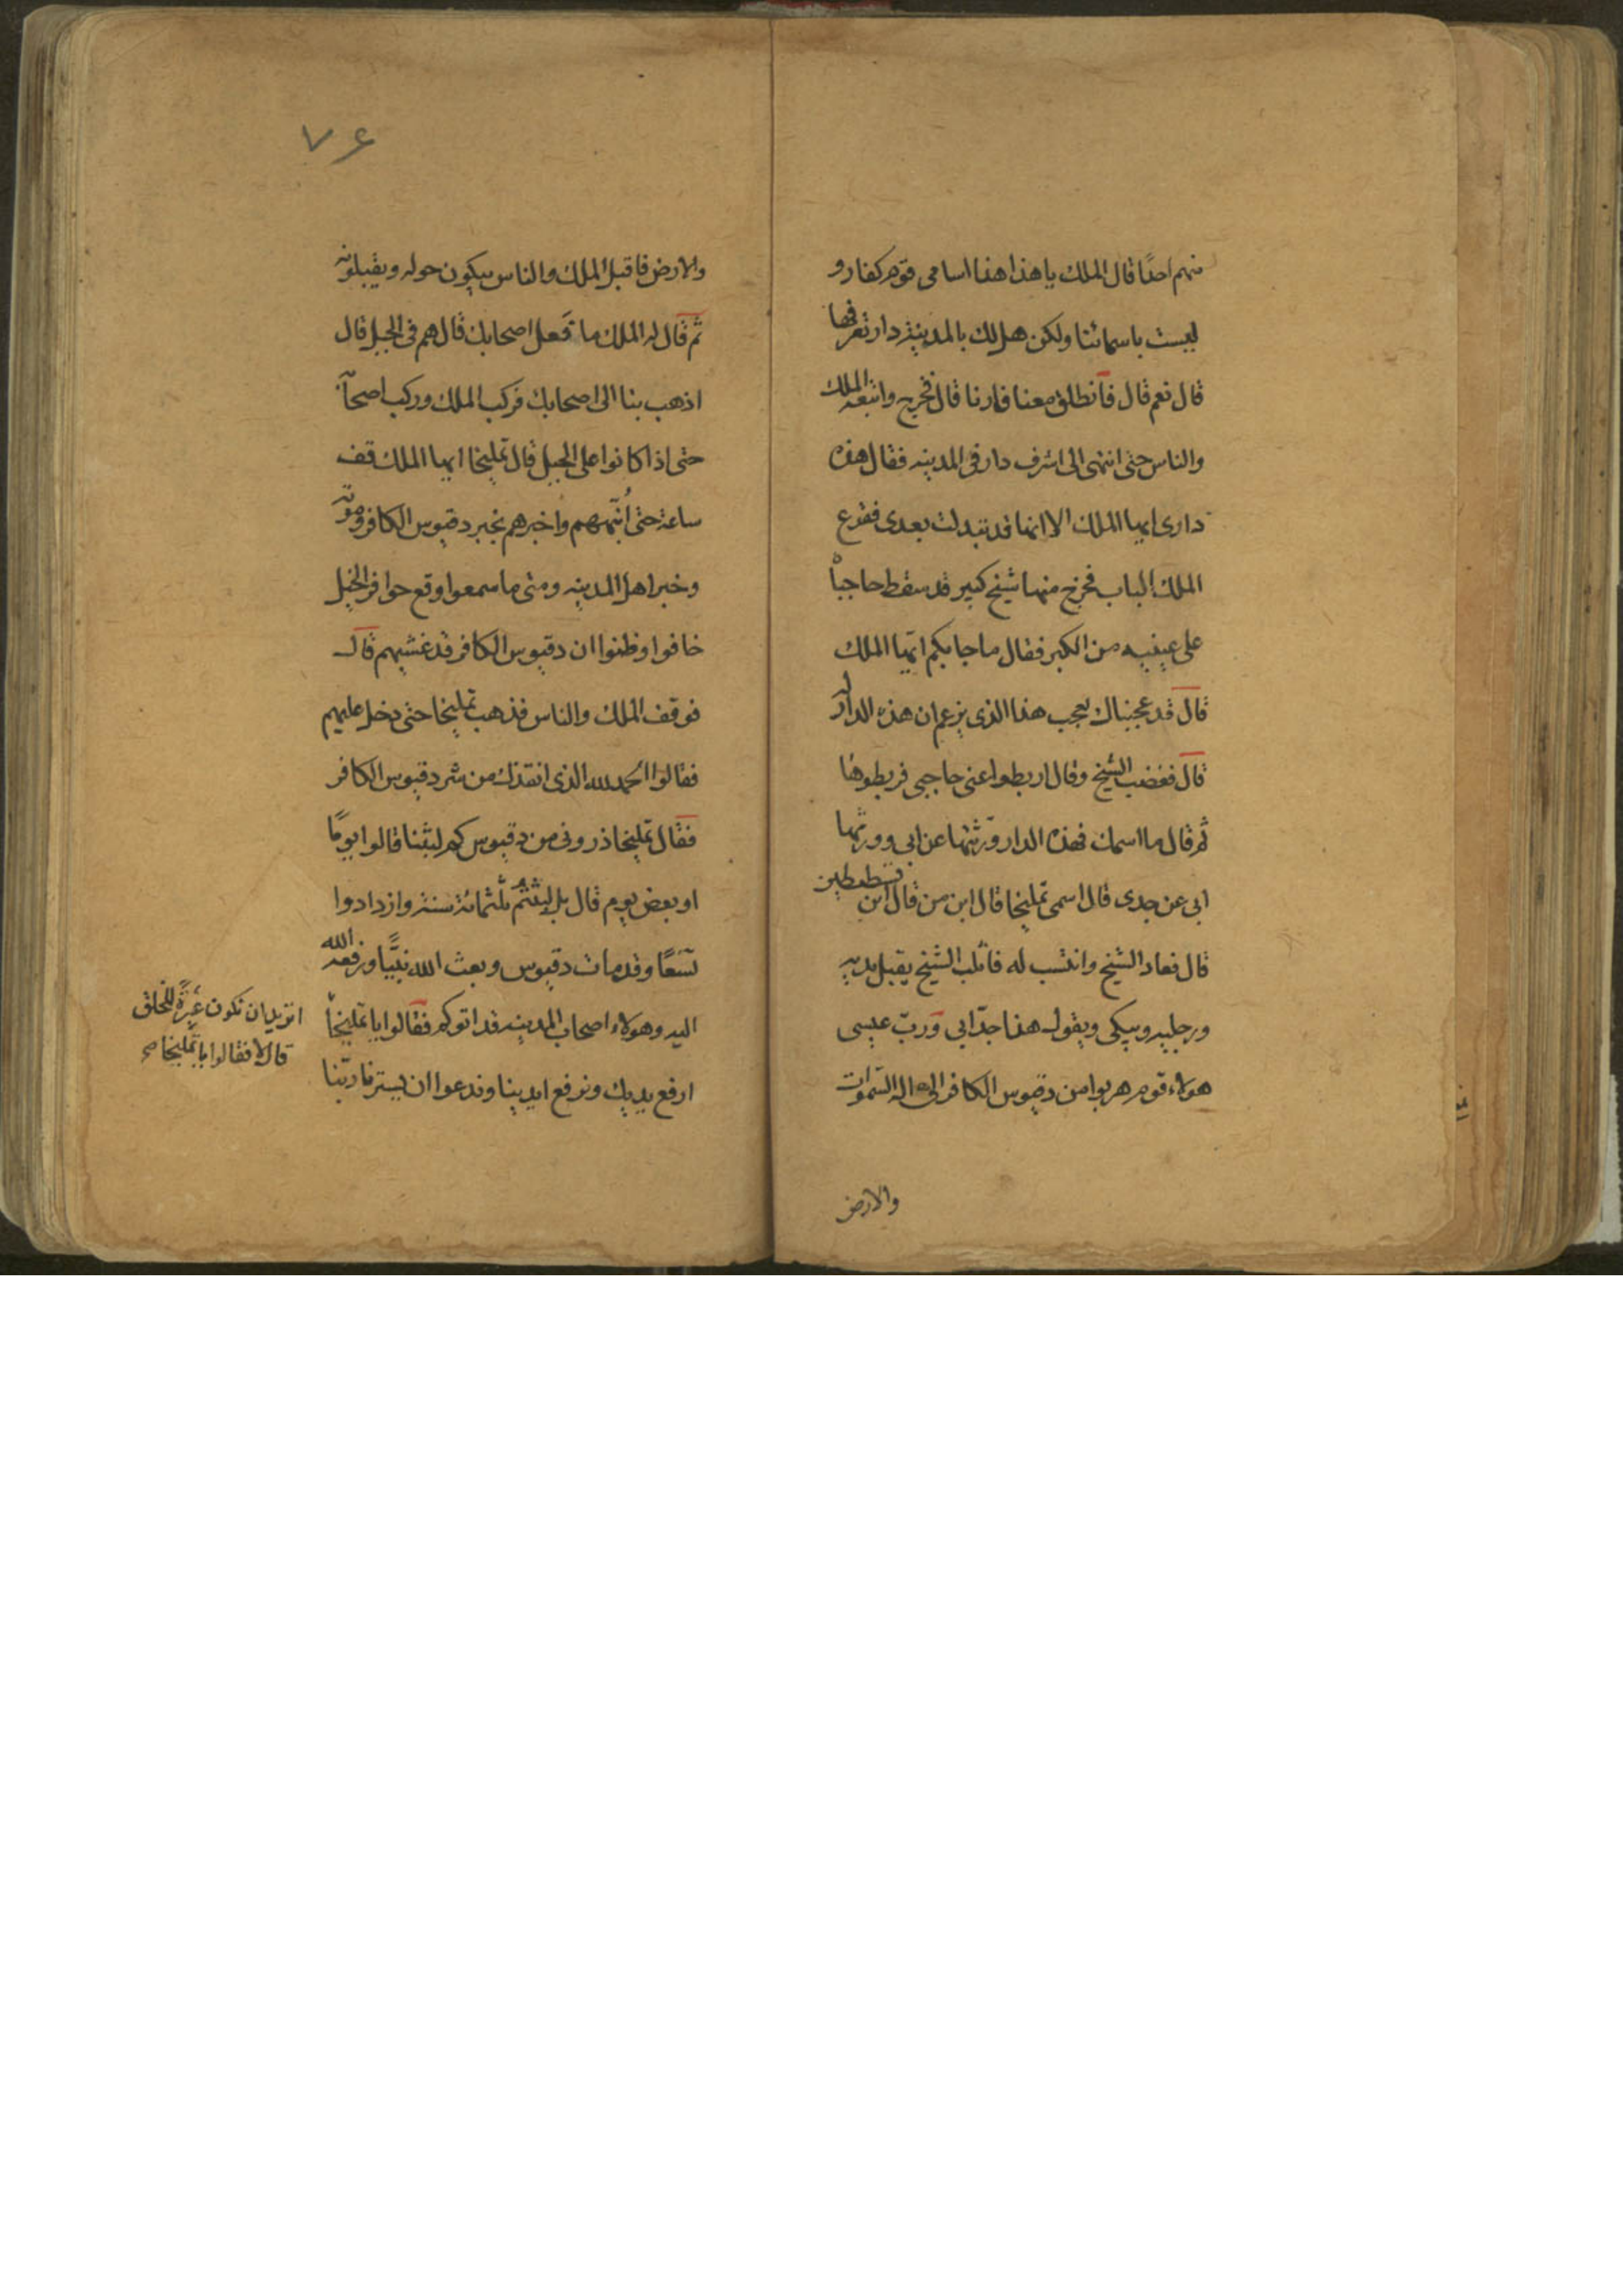 منهم احدًا قال الملك يا هذا هذا اسامى قوم كفار و
ليست باسمائنا ولكن هل لك بالمدينة دار تعرفها
قال نعم قال فانطلق معنا فارنا قال فخرج واتبعه الملك
والناس حتى انتهى الى اشرف دار فى المدينه فقال هذه
دارى ايها الملك الا انها قد تبدلت بعدى فقرع
الملك الباب فخرج منها شيخ كبير قد سقط حاجباه
على عينيه من الكبر فقال ما جا بكم ايّها الملك
قال قد عجبناك لعجب هذا الذى يزعم ان هذه الدار له
قال فغضب الشيخ وقال اربطوا عنى حاجبى فربطوها
ثم قال ما اسمك فهذه الدار ورّثتها عن ابى وورثها
ابى عن جدى قال اسمى تمليخا قال ابن من قال ابن قسطيطين
قال فعاد الشيخ وانتسب له فانكب الشيخ يقبل يديه
ورجليه ويبكى ويقول هذا جدّ ابي وربّ عيسى
هولاء قوم هربوا من دقيوس الكافر الى اله السّموات
والارض
٧۶
والارض فاقبل الملك والناس يبكون حوله ويقبلونه
ثم قال له الملك ما فَعل اصحابك قال هم فى الجبل قال
اذهب بنا الى اصحابك فركب الملك وركب اصحابه
حتى اذا كانوا على الجبل قال تمليخا ايها الملك قف
ساعة حتى أتيهم واخبرهم بخبر دقيوس الكافر وموته
وخبر اهل المدينه ومتى ما سمعوا وقع حوافر الخيل
خافوا وظنوا ان دقيوس الكافر قد غشيهم قال
فوقف الملك والناس فذهب تمليخا حتى دخل عليهم
فقالوا الحمد لله الذى انقذك من شر دقيوس الكافر
فقال تمليخا ذرونى من دقيوس كم لبثنا قالوا يومًا
او بعض يوم قال بل لبثتم ثلثمائة سنة وازدادوا
تسعًا وقد مات دقيوس وبعث الله نبيًّا ورفعه الله
اليه وهولاء اصحاب المدينه قد اتوكم فقالوا يا تمليخا
ارفع يديك ونرفع ايدينا وندعوا ان يسترنا ربّنا
اتريد ان نكون عبرةً للخلق
قال لا فقالوا يا تمليخا صح